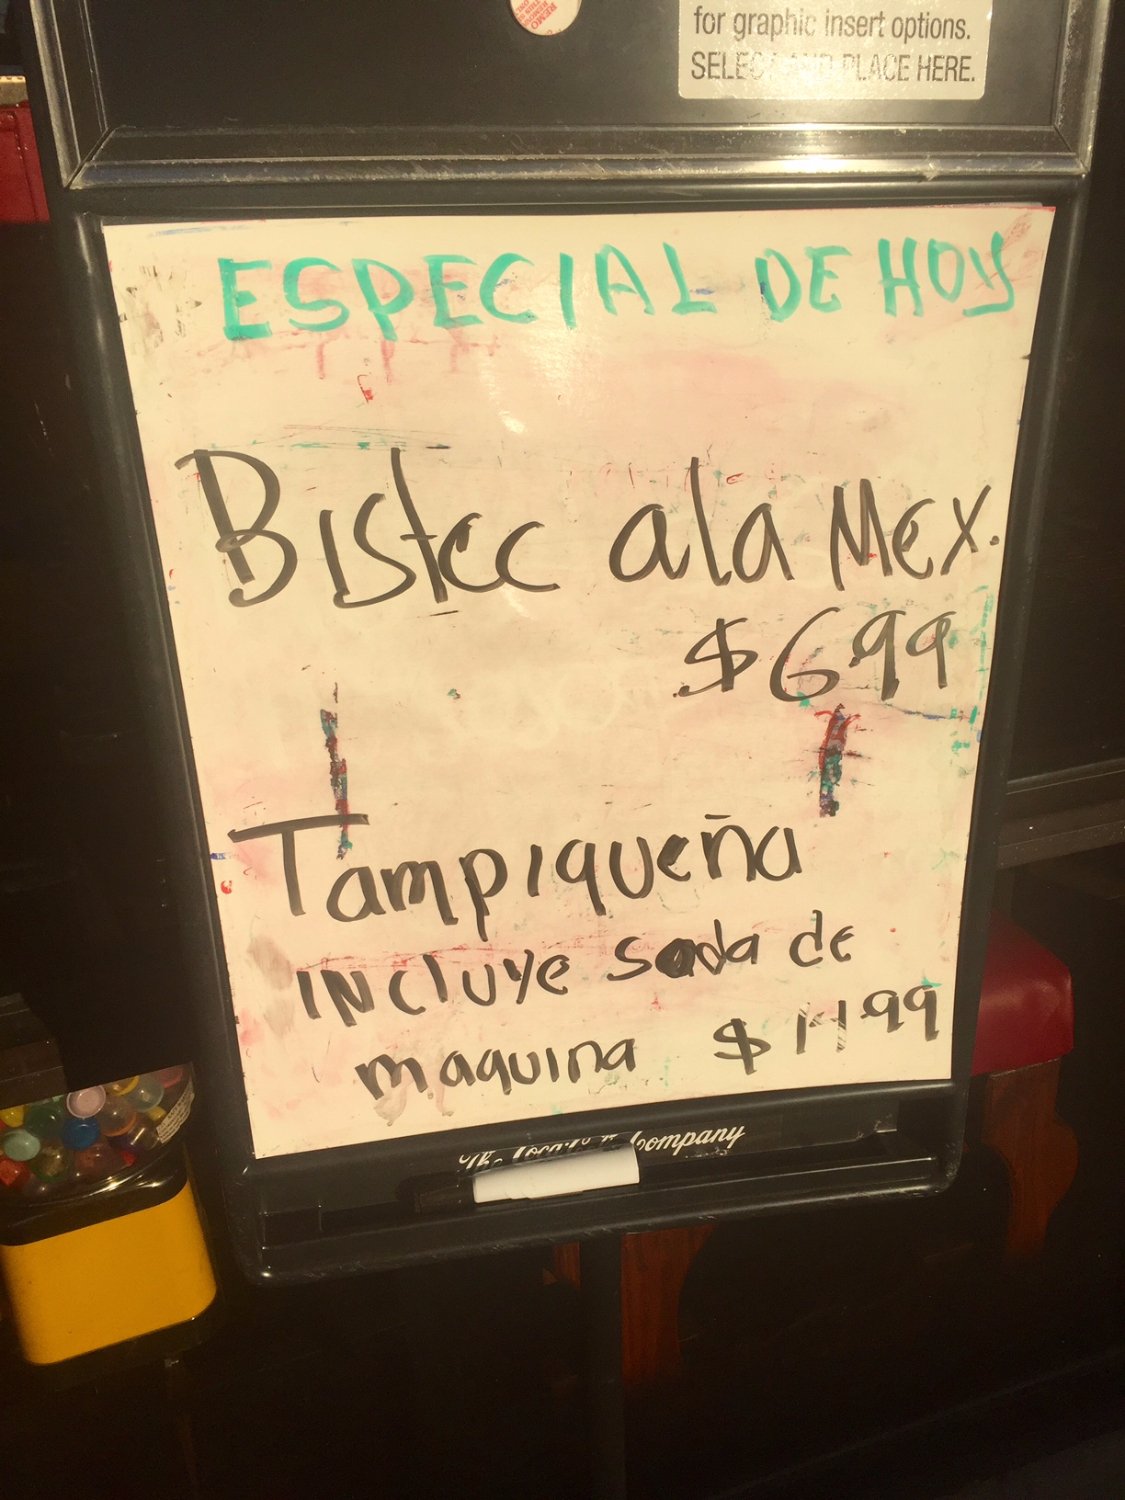 for graphic insert options.
SELECT AND PLACE HERE.
ESPECIAL DE HOY
Bistec ala Mex.
$699
Tampiqueña
INCLUYE soda de
maquina $1199
The Coca-Cola Company